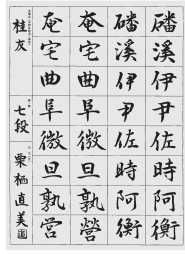 磻溪伊尹佐時阿衡
磻溪伊尹佐時阿衡
奄宅曲阜微旦孰營
奄宅曲阜微旦孰営
七段 栗栖直美